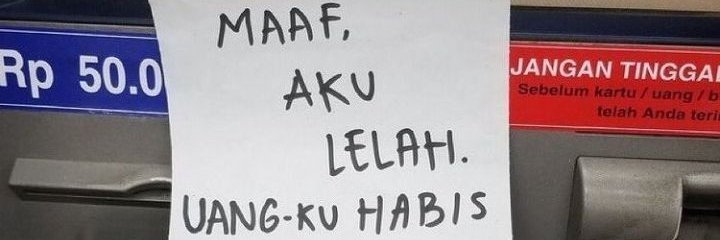 MAAF,
AKU
LELAH.
UANG-KU HABIS
Rp 50.0
JANGAN TINGGAL
Sebelum kartu / uang / b
telah Anda teri